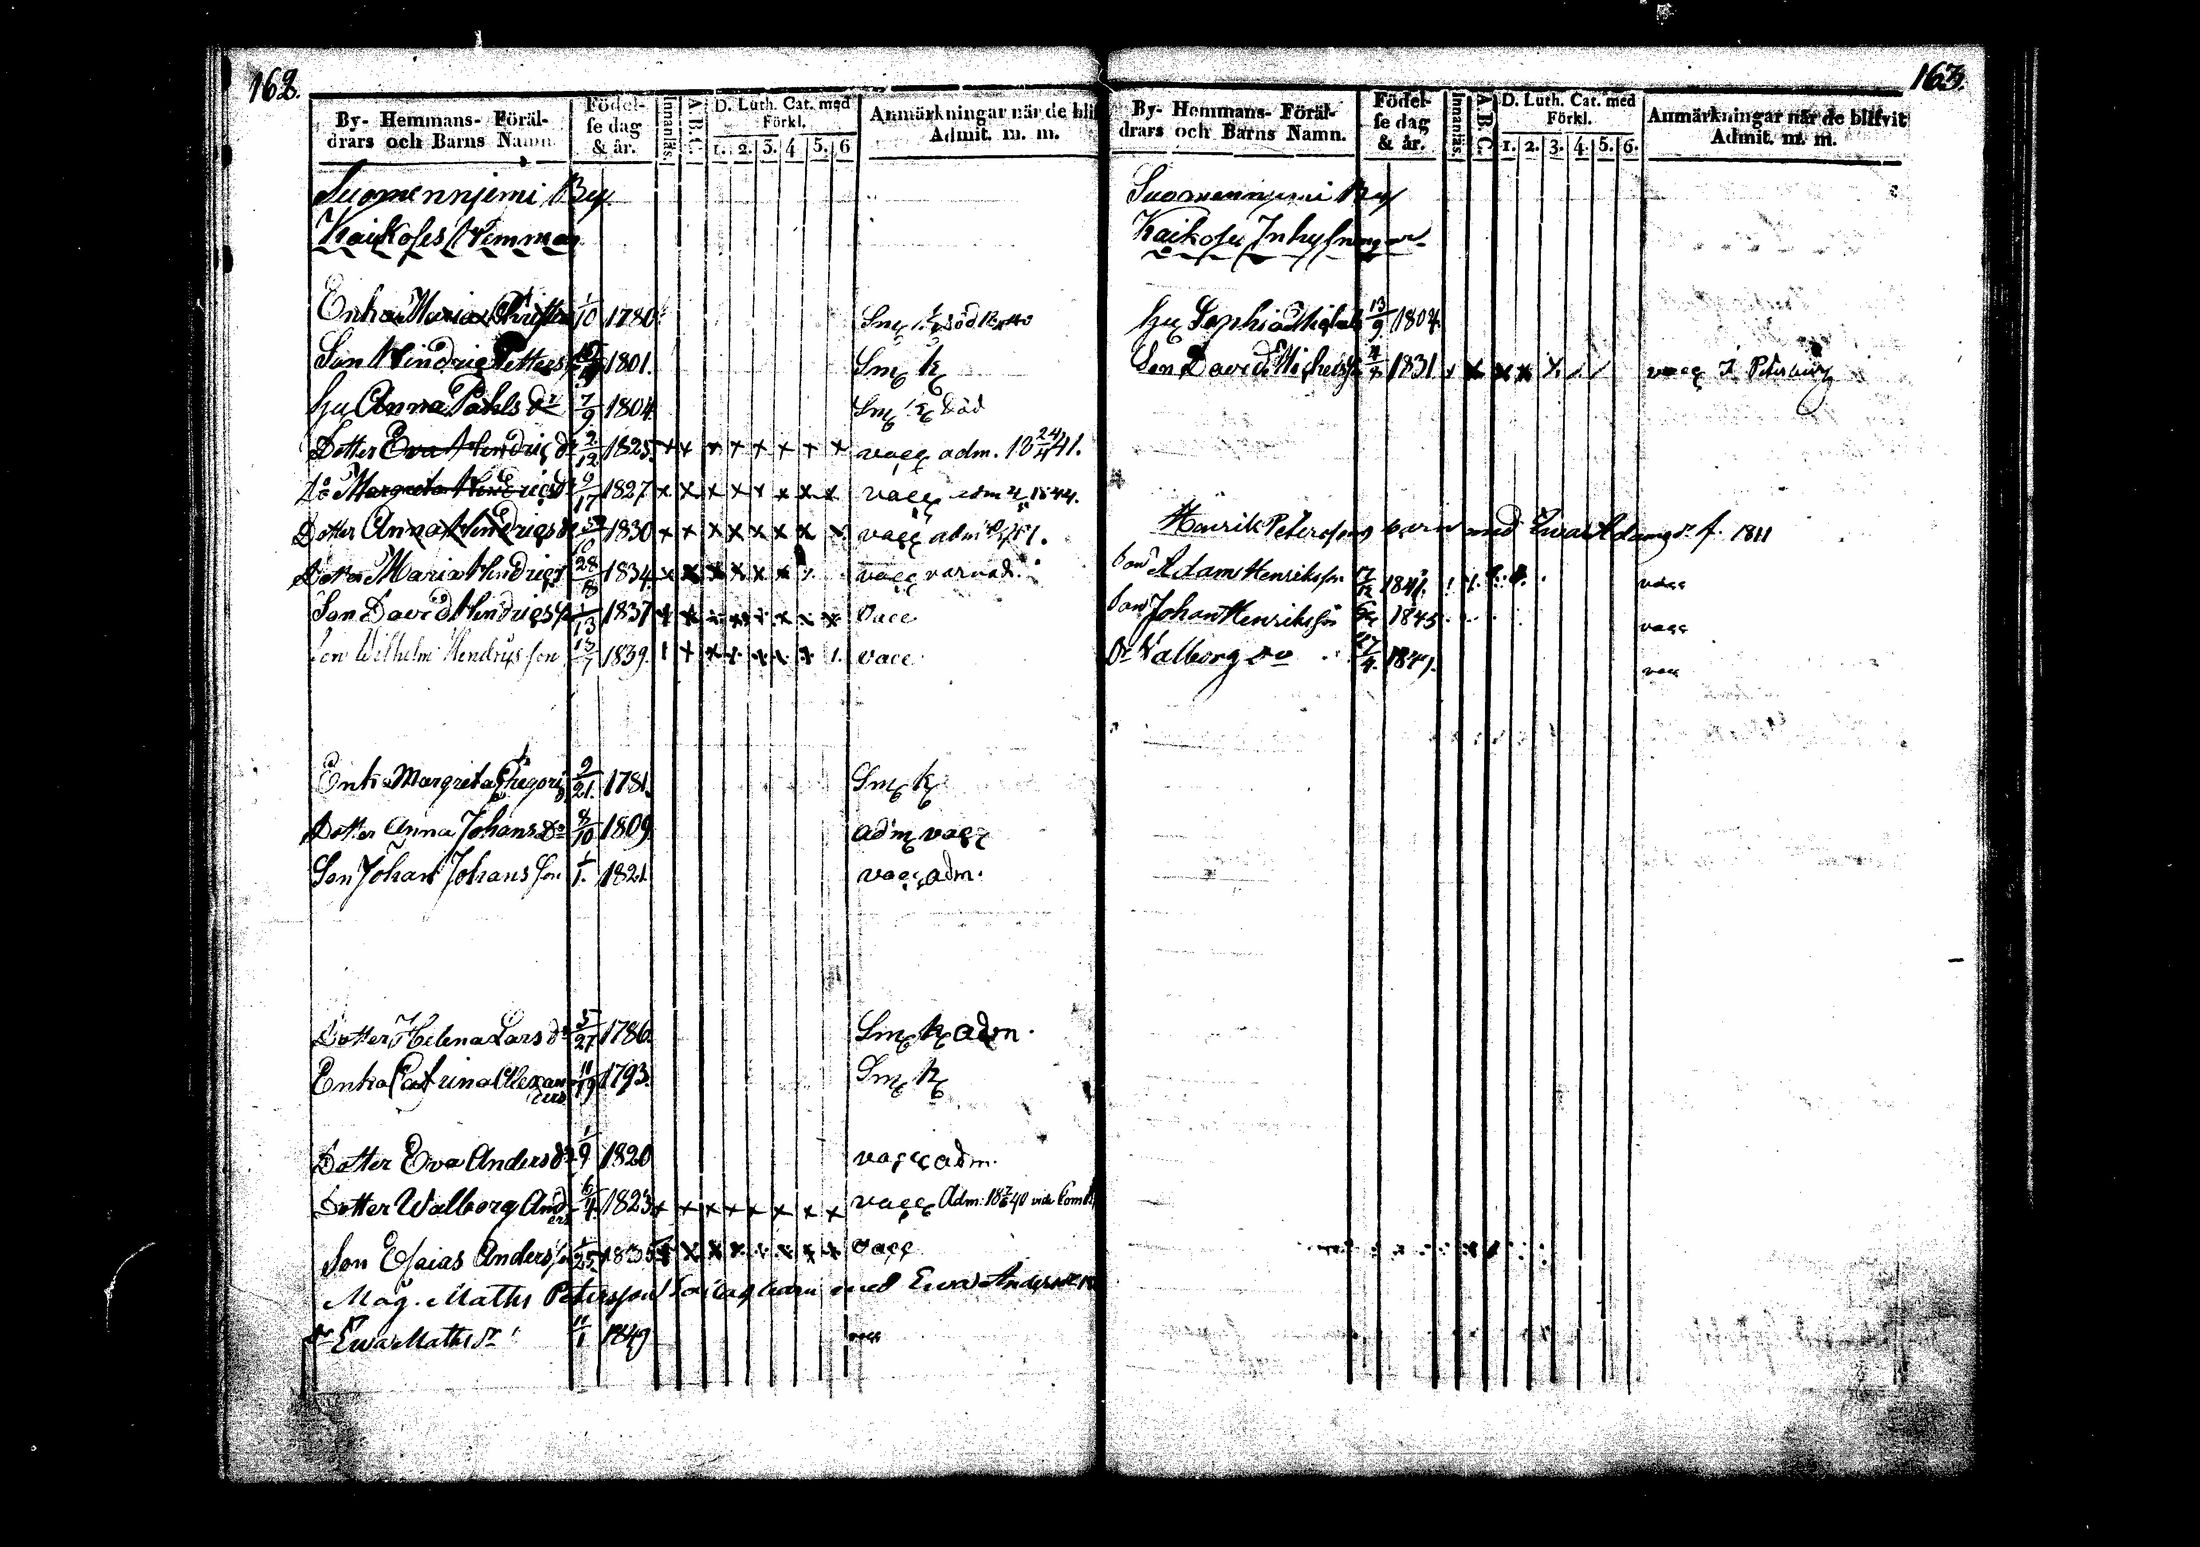 162.
By- Hemmans- Föräl-
drars och Barns Namn
Födel-
se dag
& år.
Innanläs.
A.B.C.
D. Luth. Cat. med
Förkl.
1. 2. 3. 4 5. 6
Anmärkningar när de blif
Admit. m. m.
Suomennjemi By
Kaikoses Hemman
Enka Maria 1/10 1780
Son Hindric Petterss 1801. Smc k
Hu Anna Påhls dr 7/9 1804 Smc k död
Dotter Eva Hindrics dr 2/12 1825. x x x x x x x x vacc adm. 18 24/4 41.
Do Margreta Hindricsdr 9/17 1827 x x x x x x x x vacc adm 1844.
Dotter Anna Hindrics dr 1830 x x x x x x x x vacc adm
Dotter Maria Hindrics 28/8 1834 x x x x x x vacc
Son David Hindricsson 1/13 1837 x x x x x x x x vacc
Son Wilhelm Hendricsson 13/7 1839. vacc
Enka Margreta Gregori 9/21. 1781. Smc k
Dotter Anna Johans Dr 8/10 1809 adm vacc
Son Johan Johans son 1/1. 1821. vacc adm.
Dotter Helena Lars dr 5/27 1786. Smc k adm.
Enka Catrina Alexan
ders 11/19 1793. Smc k
Dotter Eva Anders dr 1/9 1820 vacc adm.
Dotter Walborg And
ers 6/4 1823 x x x x x x x x vacc Adm. 18 40 vide
Son Esaias Anders son 1/25 1835 x x x x x x x x vacc
Måg. Maths Petersson barn med Ewa Anders
dr Ewa Maths dr 11/1 1849 vacc
163.
By- Hemmans- Föräl-
drars och Barns Namn.
Födel-
se dag
& år.
Innanläs.
A.B.C.
D. Luth. Cat. med
Förkl.
1. 2. 3. 4. 5. 6.
Anmärkningar när de blifvit
Admit. m. m.
Suomennjemi By
Kaikoses Inhysningar
Hu Sophia 13/9 1804.
Son David Michelsson 1831 vacc i Petersburg
Henrik Peterssons barn med Ewa Adams dr f. 1811
Son Adam Henriksson 17/12 1841. vacc
Son Johan Henriksson 1845 vacc
Dr Walborg do 27/4. 1847. vacc